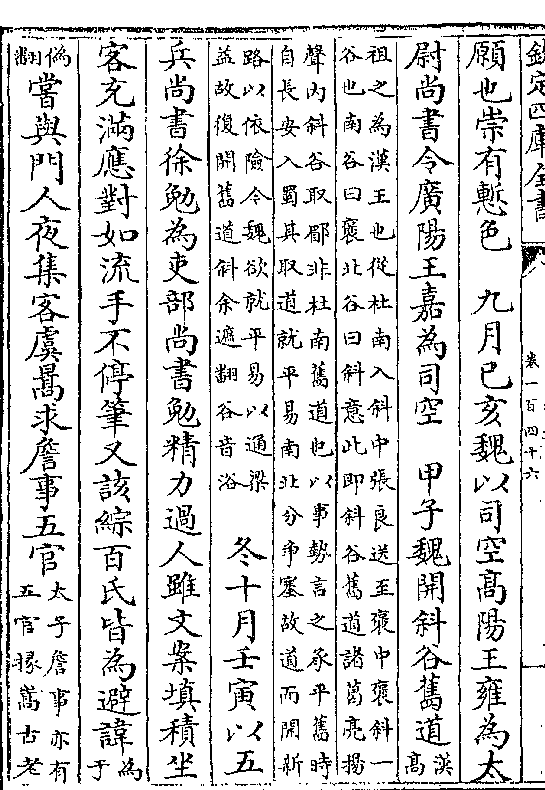 欽定四庫全書
卷一百四十六
願也崇有慙色　九月己亥魏以司空高陽王雍為太
尉尚書令廣陽王嘉為司空　甲子魏開斜谷舊道漢高
祖之為漢王也從杜南入斜中張良送至褒中褒斜一
谷也南谷曰褒北谷曰斜意此即斜谷舊道諸葛亮揚
聲内斜谷取郿非杜南舊道也以事勢言之承平舊時
自長安入蜀其取道就平易南北分爭塞故道而開新
路以依險今魏欲就平易以通梁
益故復開舊道斜余遮翻谷音浴　冬十月壬寅以五
兵尚書徐勉為吏部尚書勉精力過人雖文案填積坐
客充滿應對如流手不停筆又該綜百氏皆為避諱為于
偽翻嘗與門人夜集客虞暠求詹事五官太子詹事亦有
五官掾暠古老